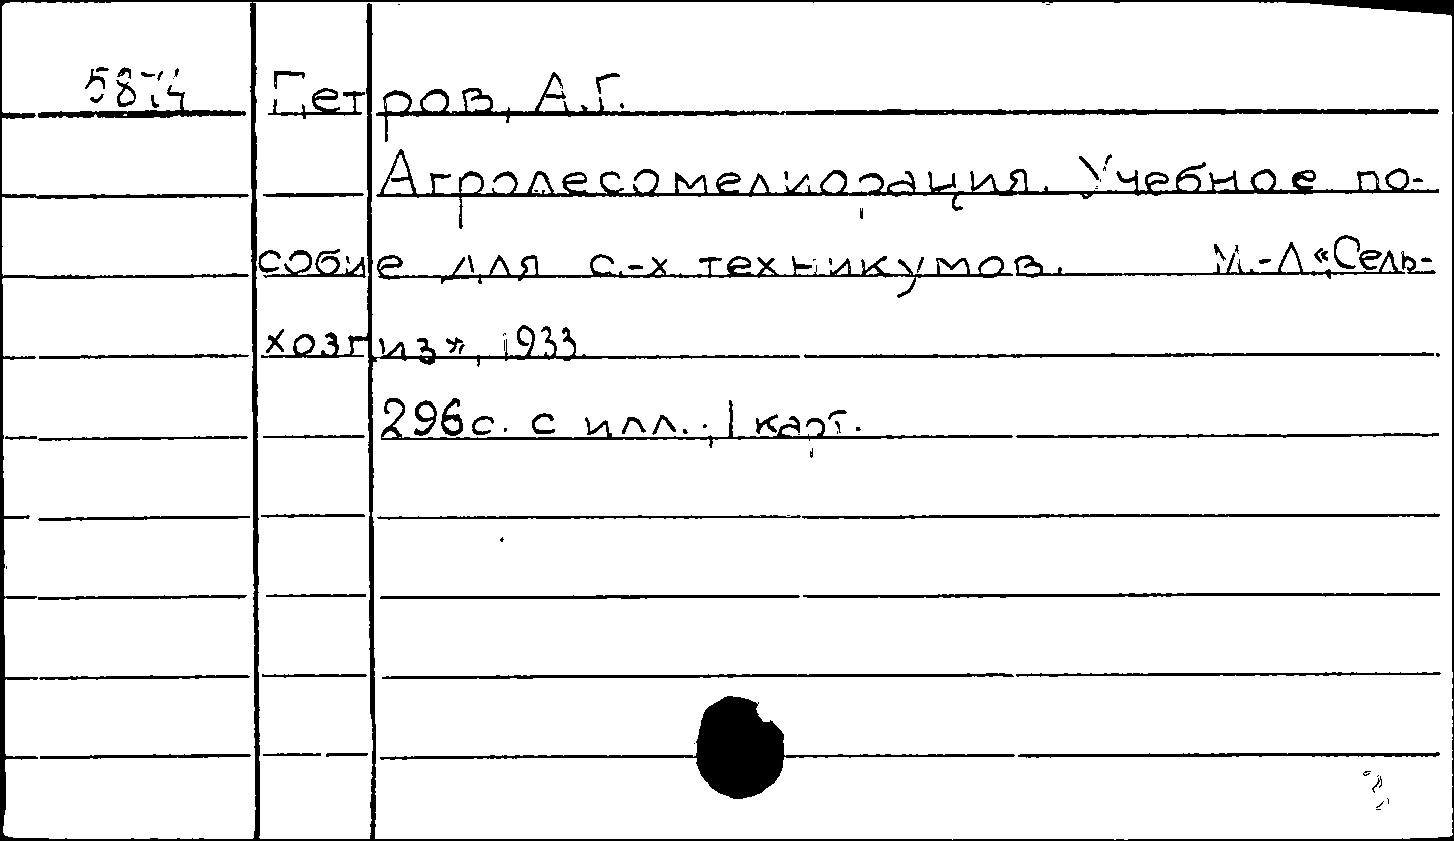 5874 Петров, А.Г.
Агролесомелиорация. Учебное по-
собие для с.-х техникумов. М.-Л «Сель-
хозгиз», 1933
296с. с илл.; 1 карт.